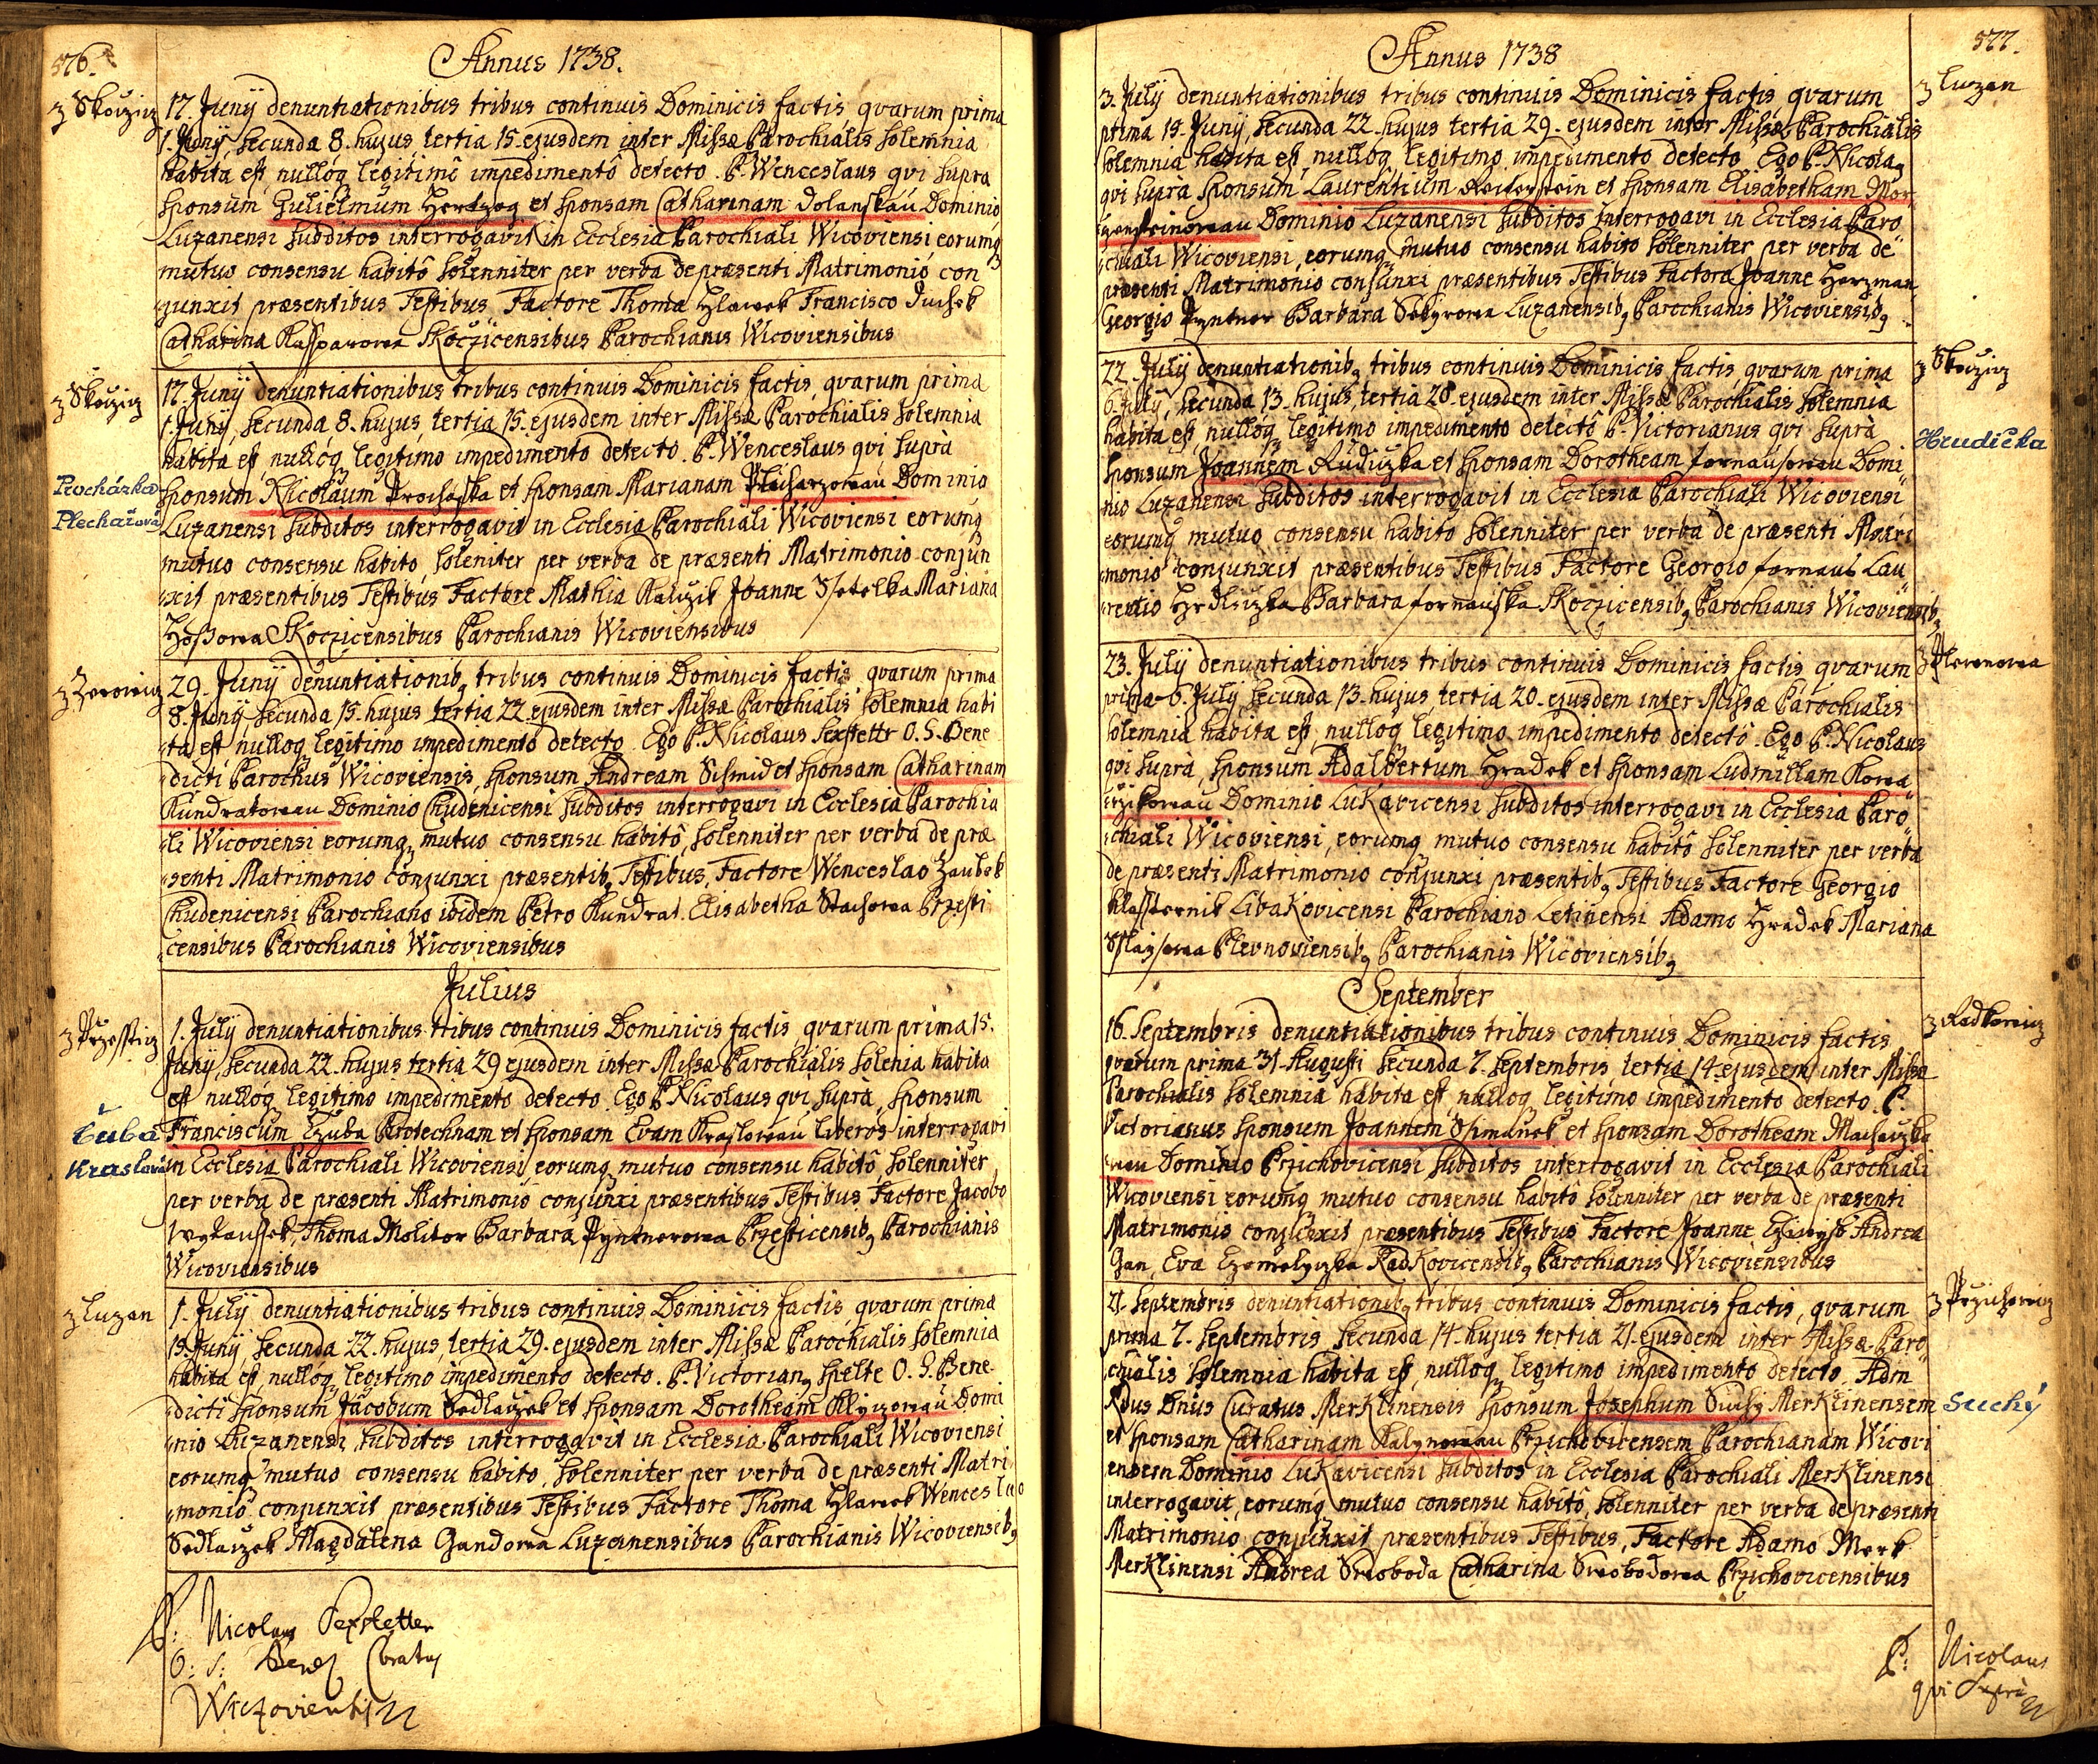 576.
Annus 1738.
z Skoczicz
17. Junÿ denuntiationibus tribus continuis Dominicis factis, qvarum prima
1. Junÿ, secunda 8. hujus, tertia 15. ejusdem inter Missæ Parochialis solemnia
habita est, nullóq legitimô impedimentô detecto. P. Wenceslaus qvi supra
sponsum Gulielmum Hertzog et sponsam Catharinam Dolanskau Dominio
Luzanensi subditos interrogavit in Ecclesia Parochiali Wicoviensi eorumq
mutuo consensu habitô solenniter per verba de præsenti Matrimonió con
junxit præsentibus Testibus Factore Thoma Hlawek Francisco Duchek
Catharina Kassparowa Skoczicensibus Parochianis Wicoviensibus
z Skoczicz
Procházka
Plechařová
17. Junÿ denuntiationibus tribus continuis Dominicis factis, qvarum prima
1. Junÿ, secunda 8. hujus, tertia 15. ejusdem inter Missæ Parochialis solemnia
habita est, nullóq legitimo impedimento detecto. P. Wenceslaus qvi supra
sponsum Nicolaum Prochaska et sponsam Marianam Plicharzowau Dominio
Luzanensi subditos interrogavit in Ecclesia Parochiali Wicoviensi eorumq
mutuo consensu habito, soleniter per verba de præsenti Matrimonio conjun
xit præsentibus Testibus Factore Mathia Kaliczik Joanne Mariana
Skoczicensibus Parochianis Wicoviensibus
29. Junÿ denuntiationibq tribus continuis Dominicis factis, qvarum prima
8. Junÿ secunda 15. hujus tertia 22. ejusdem inter Missæ Parochialis solemnia habi
ta est nulloq legitimo impedimentô detecto. Ego P. Nicolaus Sexstettr O. S. Bene
dicti Parochus Wicoviensis, sponsum Andream Schmid et sponsam Catharinam
Kundratowau Dominio Chudenicensi subditos interrogavi in Ecclesia Parochia
li Wicoviensi eorumq mutuo consensu habitô, solenniter per verba de præ
senti Matrimonio conjunxi præsentibq Testibus, Factore Wenceslao Zaubek
Chudenicensi Parochiano ibidem Petro Kundrat Elisabetha Stachowa Przesti
censibus Parochianis Wicoviensibus
Julius
z Przessticz
Čuba
Kraslová
1. Julÿ denuntiationibus tribus continuis Dominicis factis, qvarum prima 15.
Junÿ, secunda 22. hujus tertia 29 ejusdem inter Missæ Parochialis solenia habita
est nullóq legitimo impedimento detecto Ego P. Nicolaus qvi supra, sponsum
Franciscum Czuba Pirotechnam et sponsam Evam Kraslowau liberos interrogavi
in Ecclesia Parochiali Wicoviensi, eorumq mutuo consensu habitô, solenniter
per verba de præsenti Matrimonio conjunxi præsentibus Testibus Factore Jacobo
Wykaussek, Thoma Molitor Barbara Pyntnerowa Przesticensibq Parochianis
Wicoviensibus
z Luzan
1. Julÿ denuntiationibus tribus continuis Dominicis factis, qvarum prima
15. Junÿ, secunda 22. hujus, tertia 29. ejusdem inter Missæ Parochialis solemnia
habita est, nullóq legitimo impedimento detecto. P. Victorianq Spelte O. S. Bene
dicti sponsum Jacobum Sedlaczek et sponsam Dorotheam Domi
nio Luzanensi, subditos interrogavit in Ecclesia Parochiali Wicoviensi
eorumq mutuo consensu habito, solenniter per verba de præsenti Matri
monio conjunxit præsentibus Testibus Factore Thoma Hlawek Wenceslao
Sedlaczek Magdalena Gandowa Luzanensibus Parochianis Wicoviensibq
P: Nicolaus Sexstetter
O: S: Bened Curatus
Wiczoviensis
577.
Annus 1738
z Luzan
3. Julÿ denuntiationibus tribus continuis Dominicis factis, qvarum
prima 15. Junÿ secunda 22. hujus tertia 29. ejusdem inter Missæ Parochialis
solemnia habita est, nullóq legitimo impedimento detecto Ego P. Nicolaq
qvi supra sponsum Laurentium Reiterstein et sponsam Elisabetham Mor
gensteinowau Dominio Luzanensi subditos interrogavi in Ecclesia Paro
chiali Wicoviensi, eorumq mutuo consensu habito solenniter per verba de
præsenti Matrimonio conjunxi præsentibus Testibus Factore Joanne Herzman
Georgio Pyntner Barbara Sekyrowa Luzanensibq Parochianis Wicoviensibq
z Skoczicz
Hrudička
22. Julÿ denuntiationibq tribus continuis Dominicis factis, qvarun prima
6. Julÿ, secunda 13. hujus, tertia 20. ejusdem inter Missæ Parochialis solemnia
habita est, nullóq legitimo impedimento detectô P. Victorianus qvi supra
sponsum Joannem Rudiczka et sponsam Dorotheam Fornausowau Domi
nio Luzanensi subditos interrogavit in Ecclesia Parochiali Wicoviensi
eorumq mutuo consensu habitô solenniter per verba de præsenti Matri
monio conjunxit præsentibus Testibus Factore Georgio Fornaus Lau
rentio Hrdliczka Barbara Fornauska Skoczicensibq Parochianis Wicoviensibq
z Plewnowa
23. Julÿ denuntiationibus tribus continuis Dominicis factis qvarum
prima 6. Julÿ, secunda 13. hujus, tertia 20. ejusdem inter Missæ Parochialis
solemnia habita est, nulloq legitimo impedimento detectô. Ego P. Nicolaus
qvi supra, sponsum Adalbertum Hradek et sponsam Ludmillam Kowa
rzikowau Dominio Lukavicensi subditos interrogavi in Ecclesia Paro
chiali Wicoviensi, eorumq mutuo consensu habitô solenniter per verba
de præsenti Matrimonio conjunxi præsentibq Testibus Factore Georgio
Klasternik Libakovicensi Parochiano Letinensi Adamo Hradek Mariana
Plevnoviensibq Parochianis Wicoviensibq
September
z Radkowicz
16. Septembris denuntiationibus tribus continuis Dominicis factis
qvarum prima 31. Augusti secunda 7. Septembris, tertia 14. ejusdem inter Missæ
Parochialis solemnia habita est, nulloq legitimo impedimento detecto. P.
Victorianus sponsum Joannem Ssimanek et sponsam Dorotheam Machaczko
wau Dominio Przichovicensi subditos interrogavit in Ecclesia Parochiali
Wicoviensi eorumq mutuo consensu habitô solenniter per verba de præsenti
Matrimonio conjunxit præsentibus Testibus Factore Joanne Andrea
Gan, Eva Radkovicensibq Parochianis Wicoviensibus
z Przichowicz
Suchý
21. Septembris denuntiationibq tribus continuis Dominicis factis, qvarum
prima 7. Septembris secunda 14. hujus tertia 21. ejusdem inter Missæ Paro
chialis solemnia habita est, nulloq legitimo impedimento detecto. Adm
Rdus Dnus Curatus Merklinensis sponsum Josephum Suchy Merklinensem
et sponsam Catharinam Kalynowau Przichovicensem Parochianam Wicovi
ensem Dominio Lukavicensi subditos in Ecclesia Parochiali Merklinensi
interrogavit, eorumq mutuo consensu habitô, solenniter per verba de præsenti
Matrimonio conjunxit præsentibus Testibus, Factore Adamo Merk
Merklinensi Andrea Swoboda Catharina Swobodowa Przichovicensibus
P: Nicolaus
qvi Supra